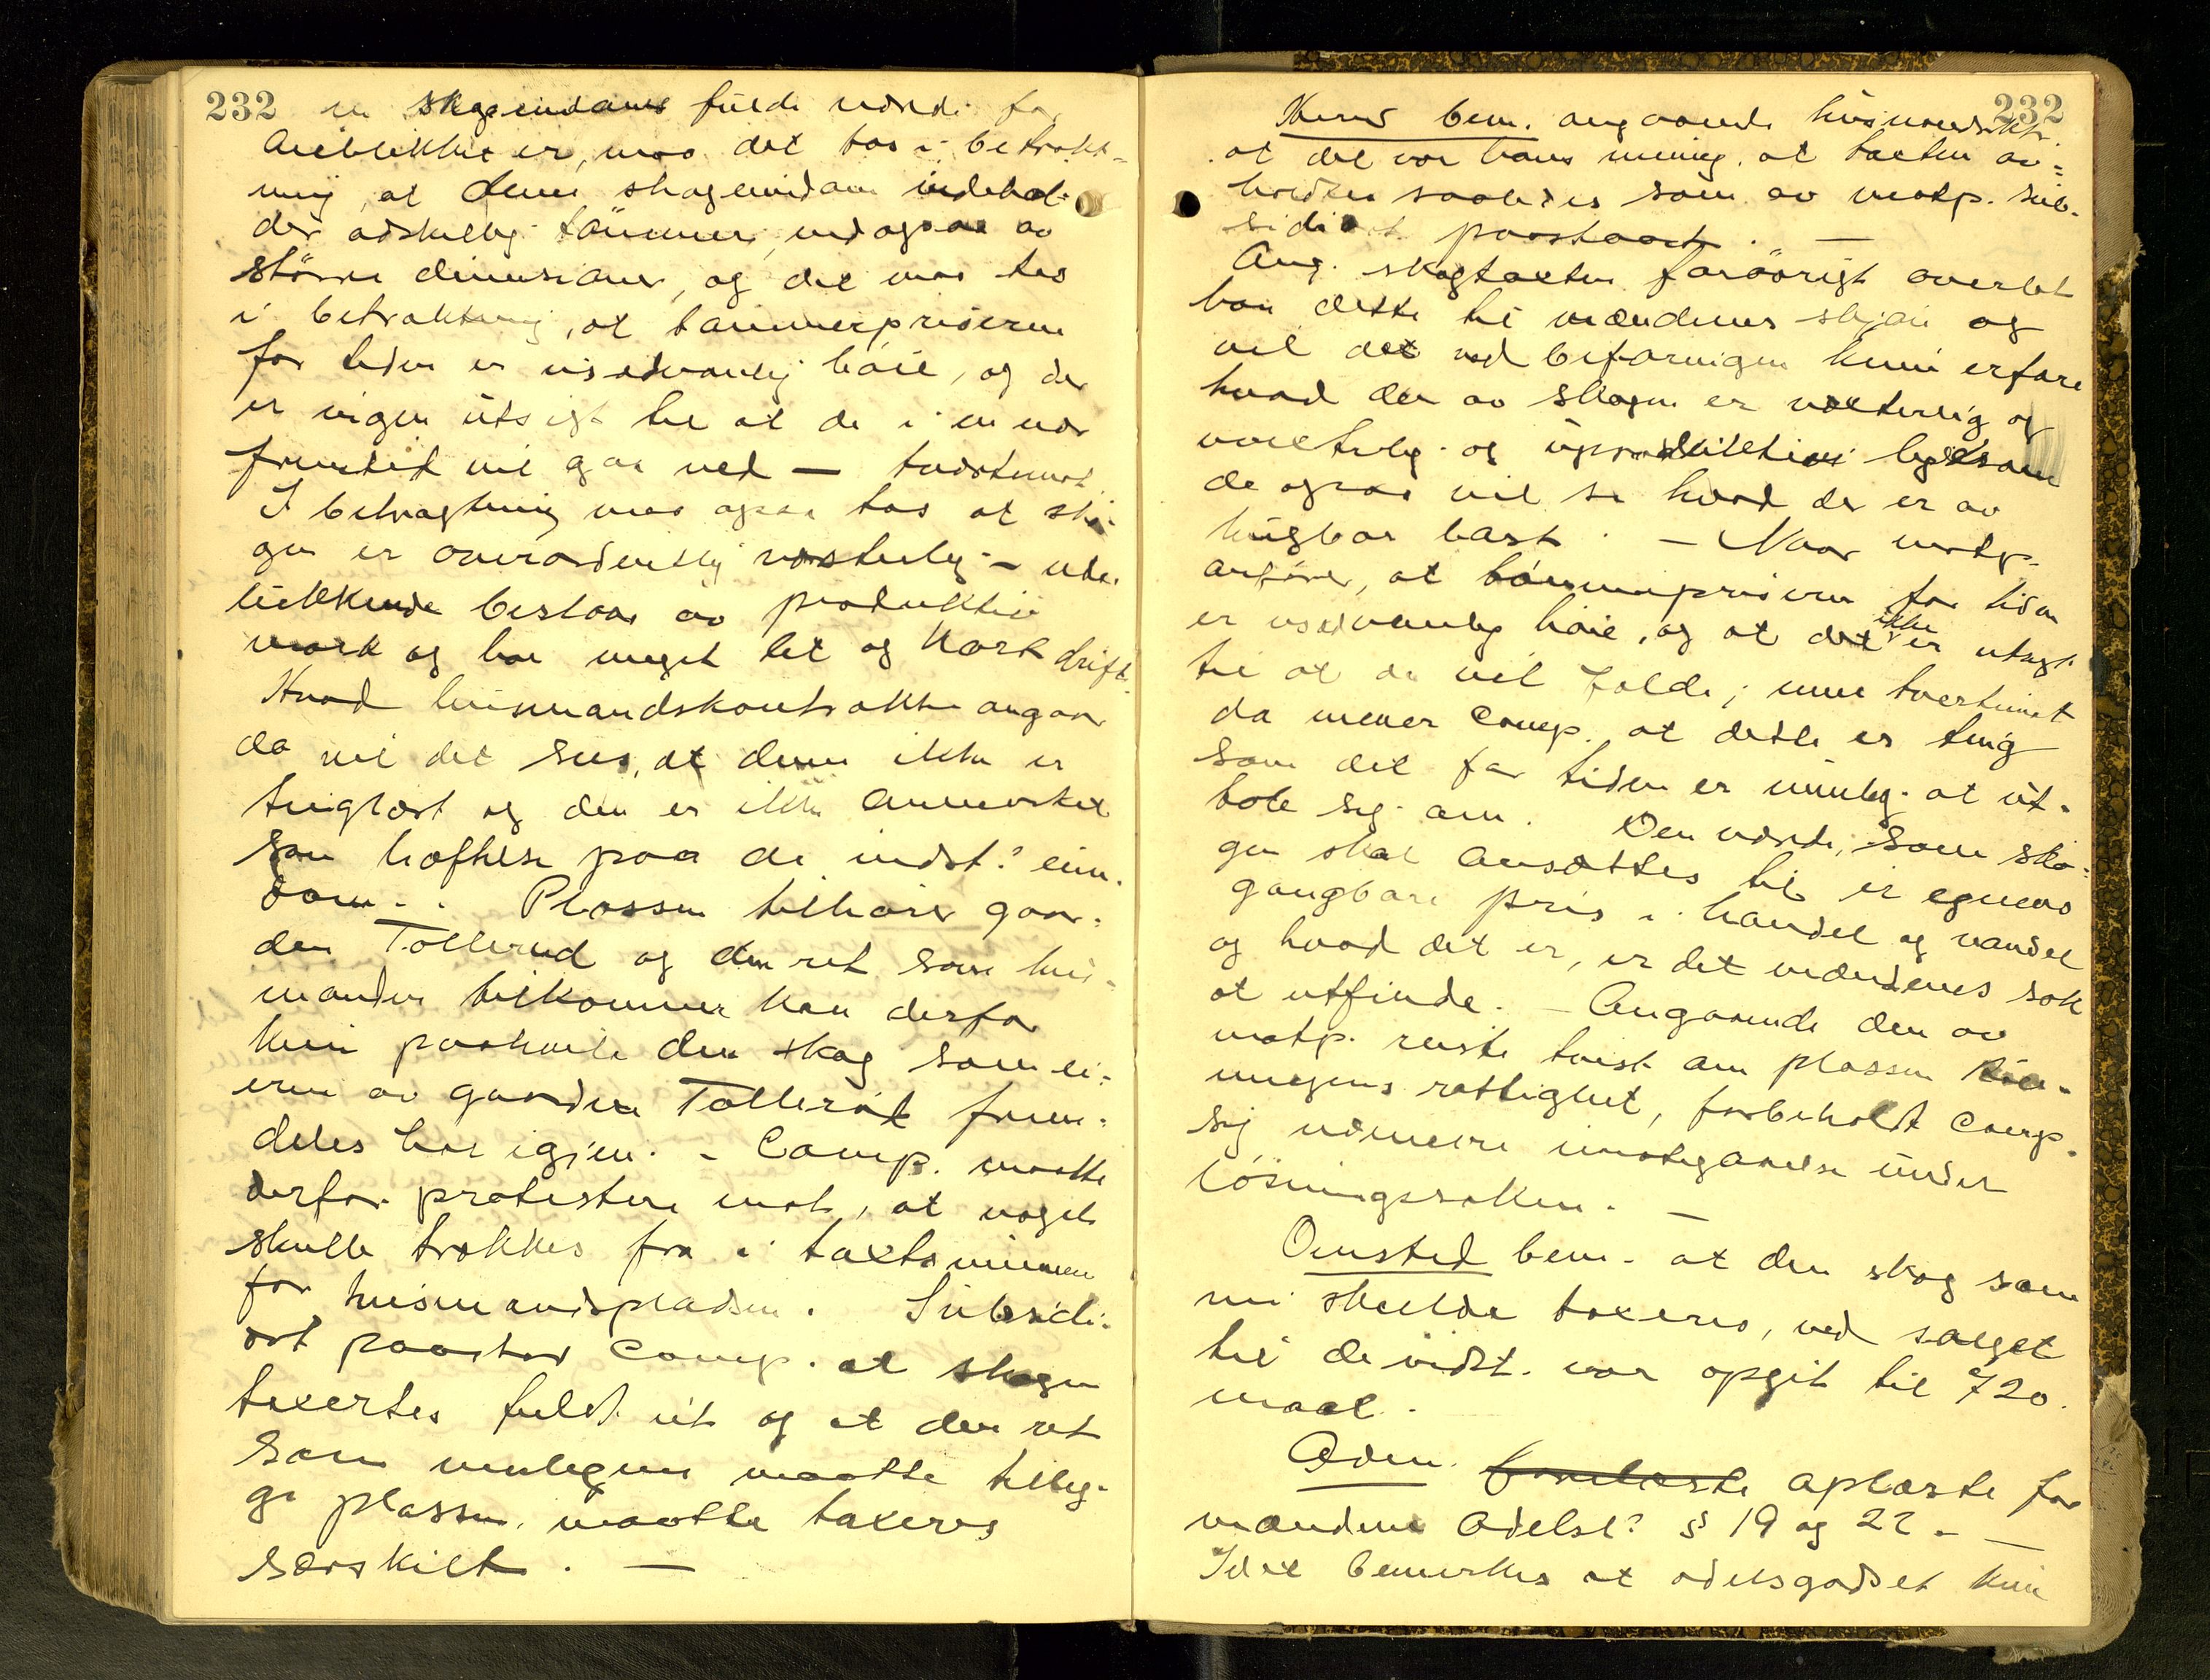 232
en skogeiendoms fulde værdi for
øieblikket er, maa det tas i betrakt=
ning, at denne skogeiendom indehol-
der adskillig tømmer, endogsaa av
større dimensioner, og det maa tas
i betraktning, at tømmerpriserne
for tiden er usedvanlig høie, og der
er ingen utsigt til at de i en nær
fremtid vil gaa ned — tvertimot.
I betragtning maa ogsaa tas at sko-
gen er overordentlig vksterlig - ute-
lukkende bestaar av produktiv
mark og har meget let og kort drift.
Hvad husmandskontrakten angaar
da vil det sees, at denne ikke er
tinglæst og den er ikke anmerket
som heftelse paa de indst.s eien-
dom. Plassen tilhører gaar-
den Tollerud og den ret som hus-
manden tilkommer kan derfor
kun paahvile den skog som ei-
erne av gaarden Tollerud frem-
deles har igjen. - Comp. maatte
derfor protestere mot, at noget
skulle trækkes fra i takstsummen
for husmandspladsen. Subsidi-
ært paastod Comp. at skogen
taxertes fuldt ut og at den ret
som muligens maatte tillig-
ge plassen, maatte taxeres
særskilt. —
232
bem. angaaende husmandskt.
at det var hans mening, at taxten av=
holdtes saaledes som av motp. sub-
sidiært paastaaet. —
Ang. skogtaxten forøvrigt overlot
han dette til mændenes skjøn og
vil det ved befaringen kunne erfare
hvad der av skogen er vkterlig og
uvekterlig og uproduktiv likesom
de ogsaa vil se hvad der er av
hugbar last. — Naar motp.
anfører, at tømmerpriserne for tiden
er usedvanlig høie, og at det ikke er utsigt
til at de vil falde, men tvertimot
da mener Comp. at dette er ting
som det for tiden er umulig at ut-
tale sig om. Den værdi, som sko-
gen skal ansættes til er egnens
gangbare pris i handel og vandel
og hvad det er, er det mændenes sak
at utfinde. — Angaaende den av
motp. reiste tvist om plassen
rettighet, forbeholdt Comp.
sig nærmere imøtegaaelse under
løsningssaken. —
Omsted bem. at den skog som
nu skulde taxeres, ved salget
til de indst. var opgit til 720
maal.
Adm. oplæste for
mændene Odelsl.s § 19 og 22. —
Idet bemerkes at odelsgodset kun